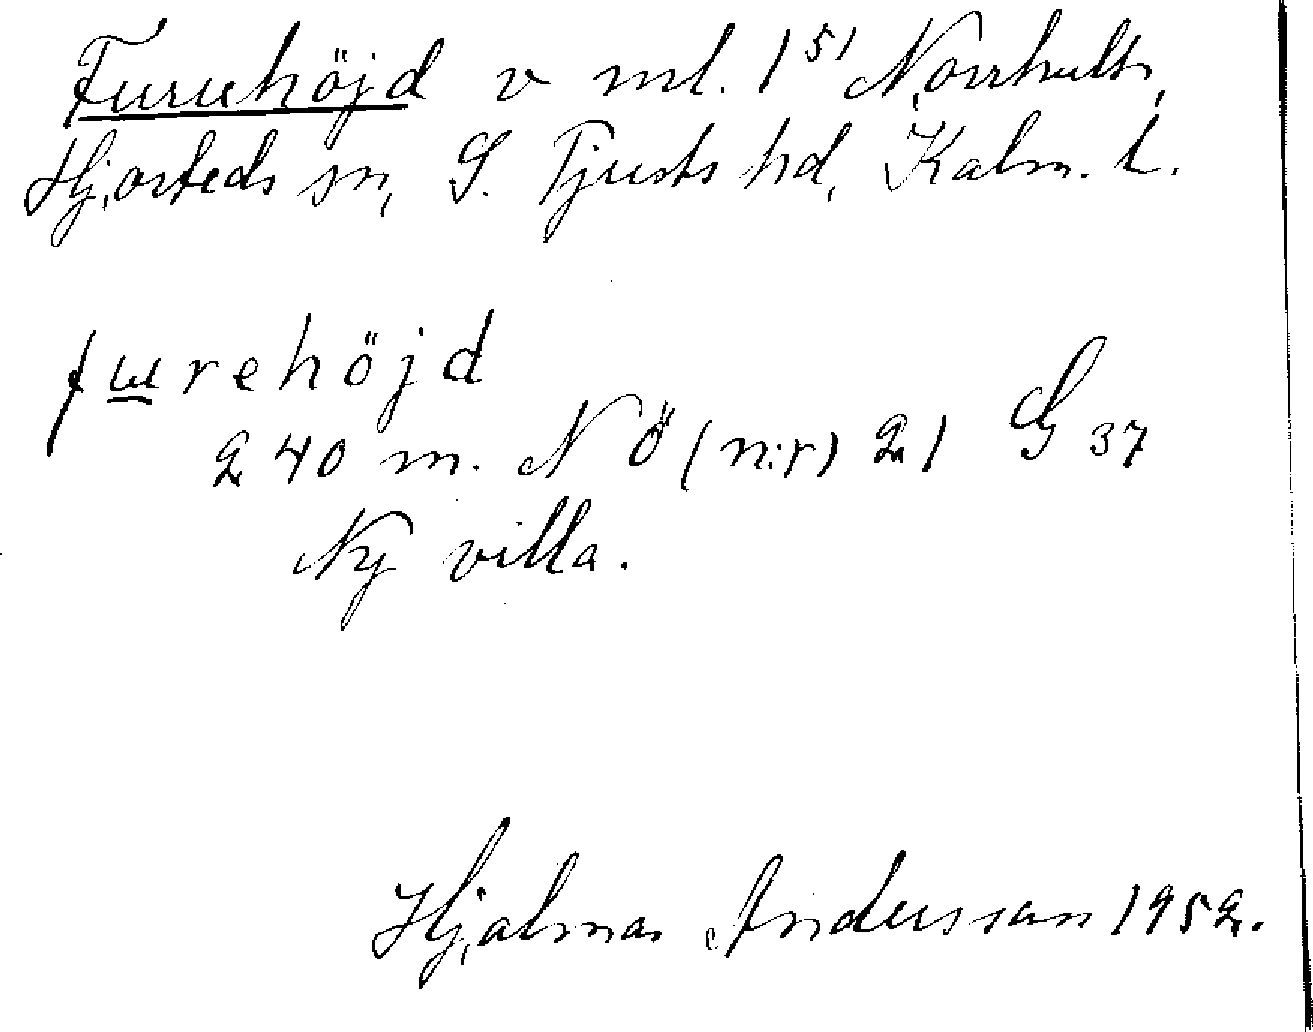 Furuhöjd v ml. 1⁵¹ Norrhult,
Hjorteds sn, S. Tjusts hd, Kalm. l.
furehöjd
240 m. N Ö (n:r) 21 G 37
Ny villa.
Hjalmar Andersson 1952.